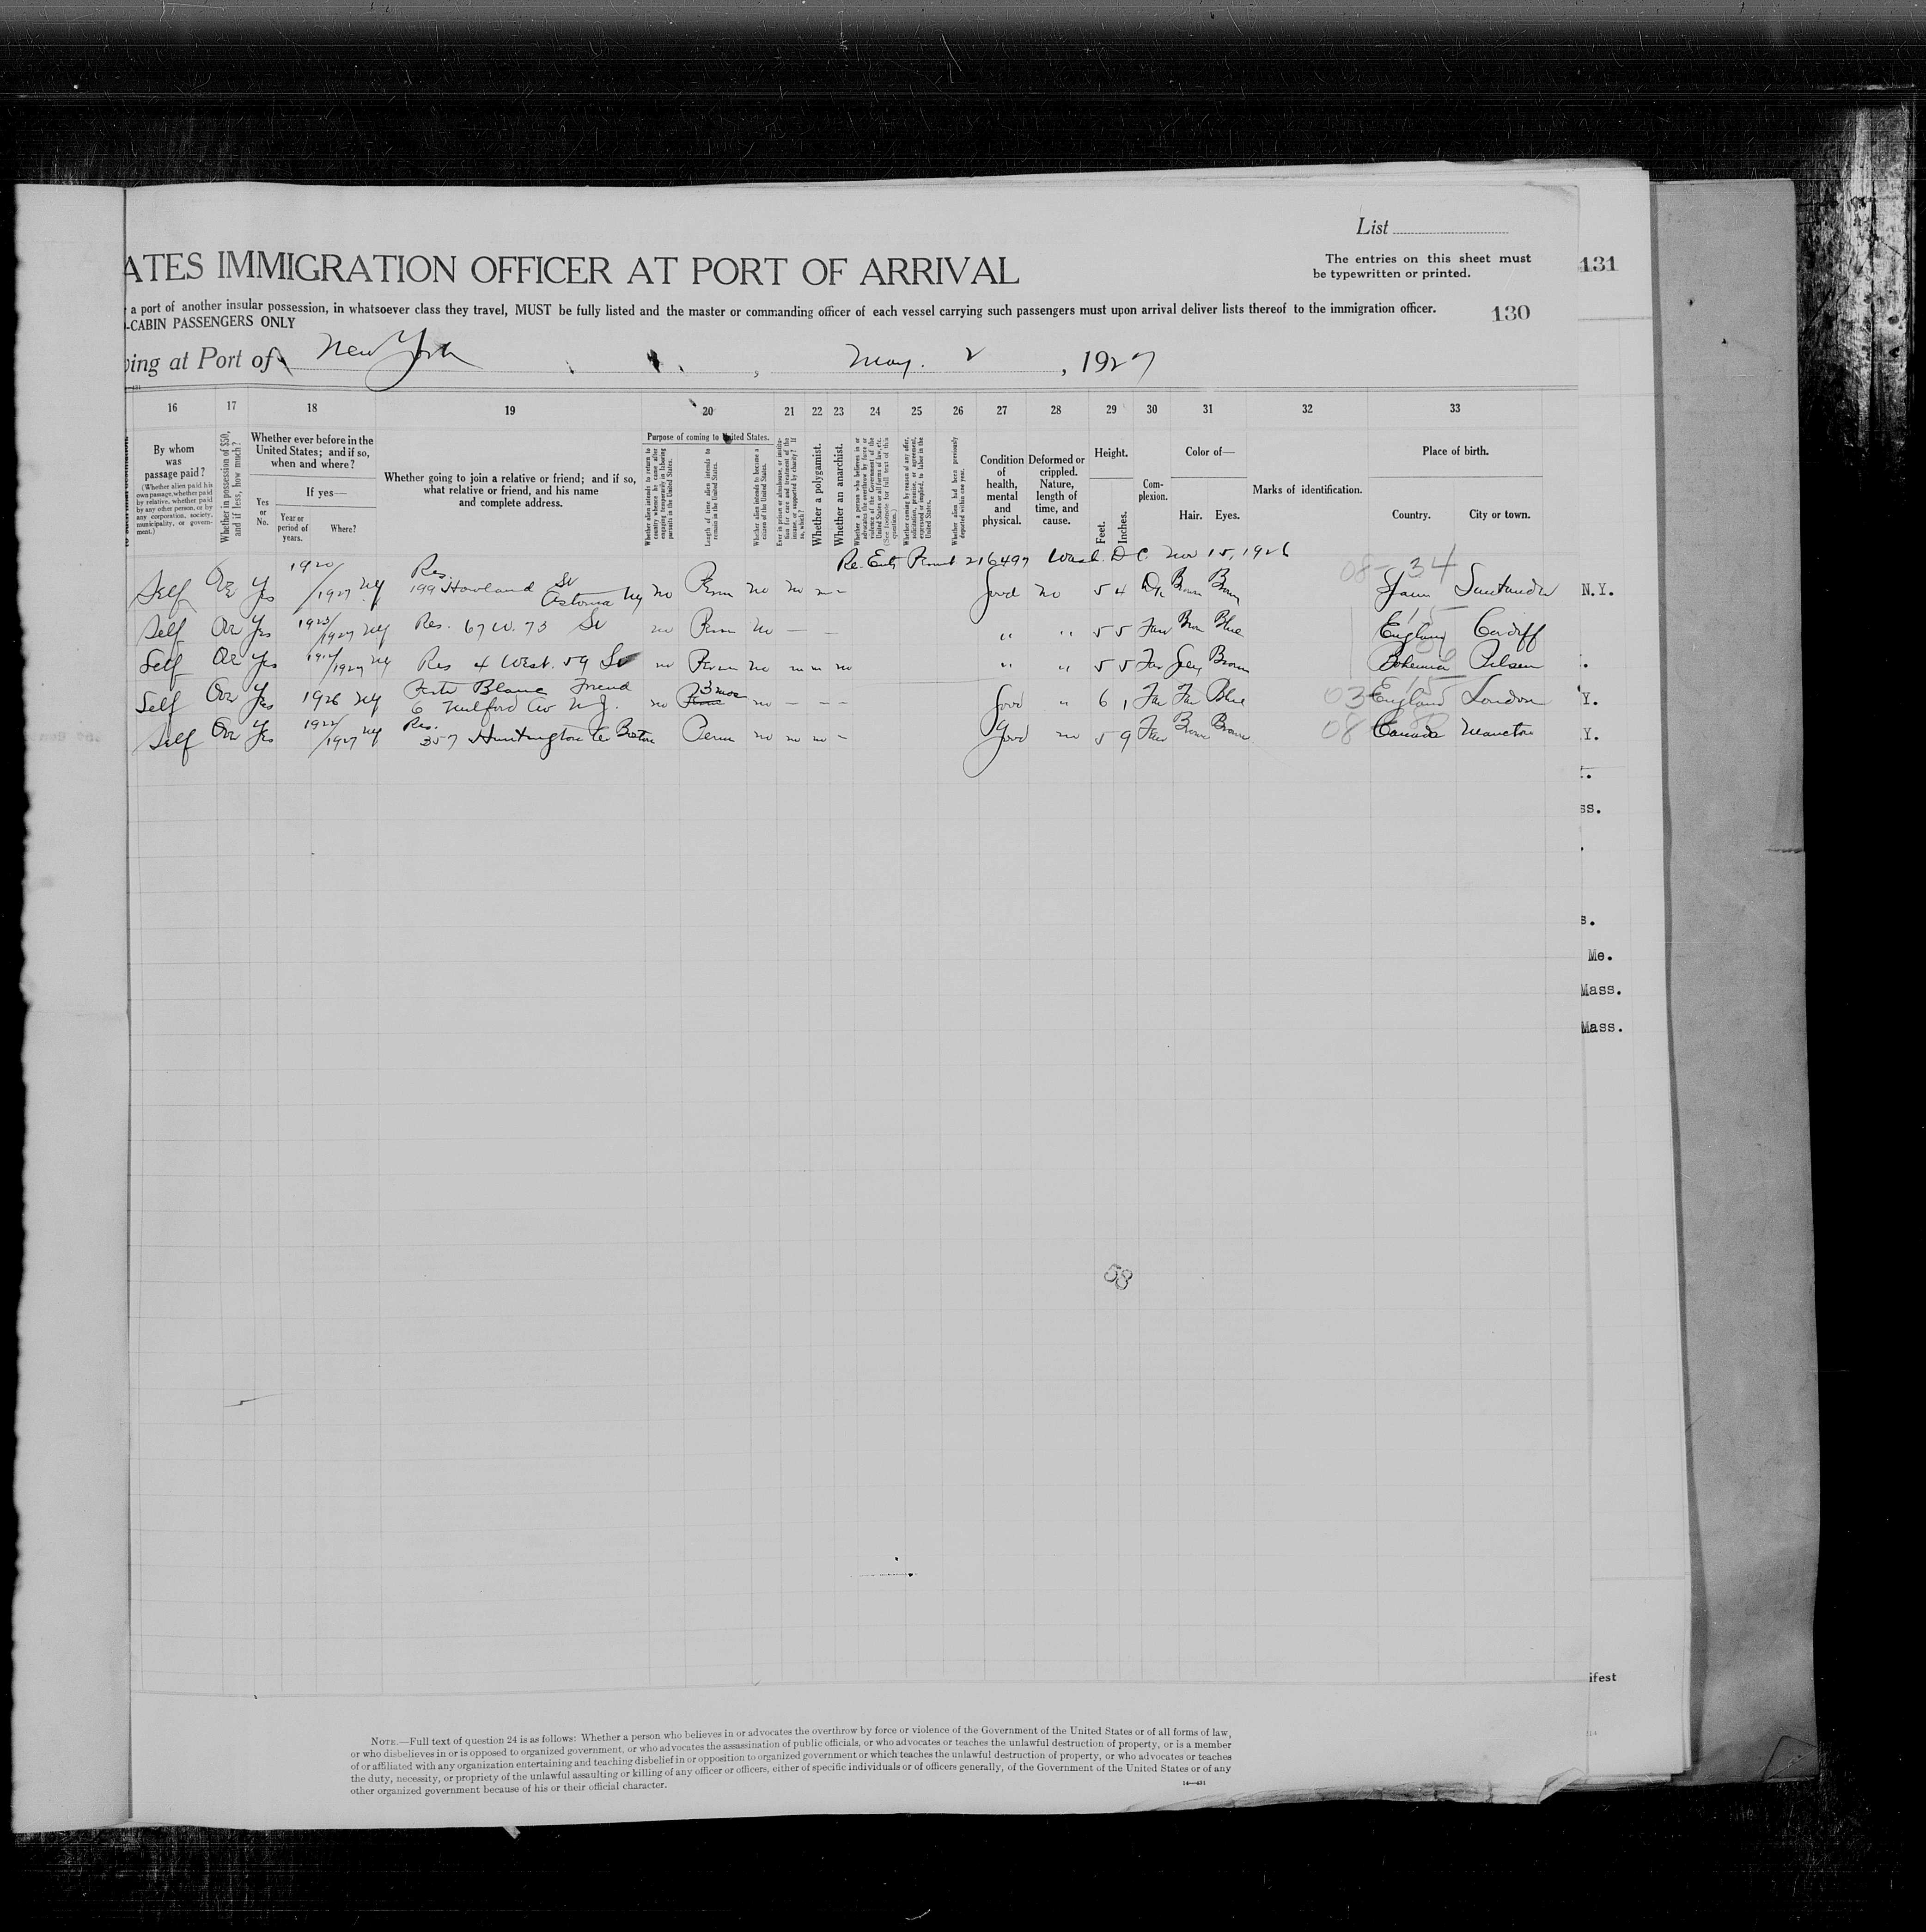 List
ATES IMMIGRATION OFFICER AT PORT OF ARRIVAL
The entries on this sheet must
be typewritten or printed.
131
a port of another insular possession, in whatsoever class they travel, MUST be fully listed and the master or commanding officer of each vessel carrying such passengers must upon arrival deliver lists thereof to the immigration officer.
-CABIN PASSENGERS ONLY
130
ving at Port of New York, May. 2, 1927
16 17 18 19 20 21 22 23 24 25 26 27 28 29 30 31 32 33
By whom
was
passage paid?
(Whether alien paid his
own passage, whether paid
by relative, whether paid
by any other person, or by
any corporation, society,
municipality, or govern-
ment.)
Whether in possession of $50,
and if less, how much?
Whether ever before in the
United States; and if so,
when and where?
Yes
or
No.
If yes—
Year or
period of
years.
Where?
Whether going to join a relative or friend; and if so,
what relative or friend, and his name
and complete address.
Purpose of coming to United States.
Whether alien intends to return to
country whence he came after
engaging temporarily in laboring
pursuits in the United States.
Length of time alien intends to
remain in the United States.
Whether alien intends to become a
citizen of the United States.
Ever in prison or almshouse, or institu-
tion for care and treatment of the
insane, or supported by charity? If
so, which?
Whether a polygamist.
Whether an anarchist.
Whether a person who believes in or
advocates the overthrow by force or
violence of the Government of the
United States or all forms of law, etc.
(See footnote for full text of this
question.)
Whether coming by reason of any offer,
solicitation, promise, or agreement,
expressed or implied, to labor in the
United States.
Whether alien had been previously
deported within one year.
Condition
of
health,
mental
and
physical.
Deformed or
crippled.
Nature,
length of
time, and
cause.
Height.
Feet.
Inches.
Com-
plexion.
Color of—
Hair. Eyes.
Marks of identification.
Place of birth.
Country. City or town.
Re. Ent. Permit 216497 Wash. D C. Nov 15, 1926
08- 34
Self Yes 1920/1927 NY Res. 199 Howland St Astoria NY no Perm no no no - Good no 5 4 Dk Brown Brown Spain Santander
N.Y.
15
Self Yes 1923/1927 NY Res. 67 W. 73 St no Perm no — — " " 5 5 Fair Brn Blue England Cardiff
Self Yes 1927 NY Res 4 West. 59 St no Perm no no no no " " 5 5 Fair Grey Brown Bohemia Pilsen
03- 15
Self Yes 1926 NY Blanc Friend
6 Milford Av N.J. no 3 mos no — — — Good " 6 1 Fair Fair Blue England London
Y.
08
Self Yes 1922/1927 NY Res. 357 Huntington Av Boston Perm no no no - Good no 5 9 Fair Brown Brown Canada Moncton
Y.
ss.
s.
Me.
Mass.
Mass.
58
ifest
NOTE.—Full text of question 24 is as follows: Whether a person who believes in or advocates the overthrow by force or violence of the Government of the United States or of all forms of law,
or who disbelieves in or is opposed to organized government, or who advocates the assassination of public officials, or who advocates or teaches the unlawful destruction of property, or is a member
of or affiliated with any organization entertaining and teaching disbelief in or opposition to organized government or which teaches the unlawful destruction of property, or who advocates or teaches
the duty, necessity, or propriety of the unlawful assaulting or killing of any officer or officers, either of specific individuals or of officers generally, of the Government of the United States or of any
other organized government because of his or their official character.
14—431